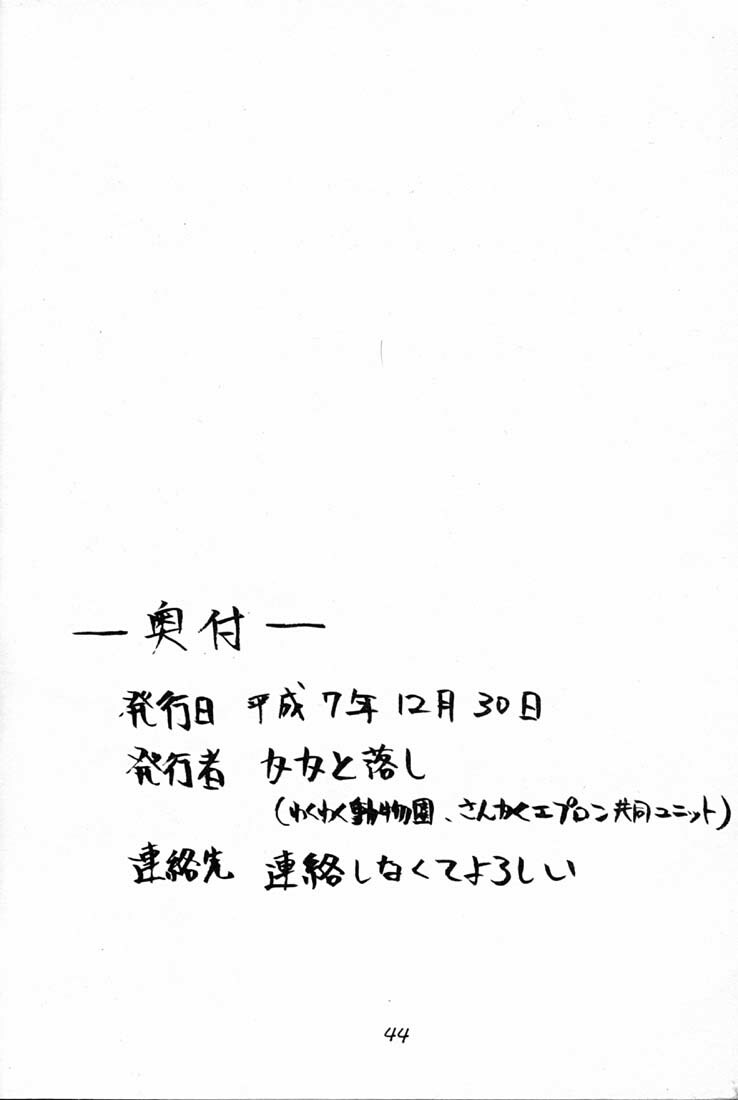 ー奥付ー
発行日 平成7年12月30日
発行者 カカと落し
(わくわく動物園、さんかくエプロン共同ユニット)
連絡先 連絡しなくてよろしい
44